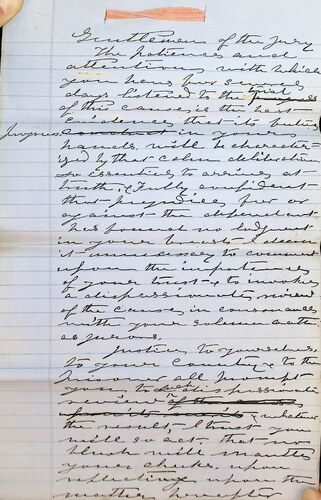 Gentlemen of the Jury
The patience and
attention with which
you have for several
days listened to the trial
of this cause is the best
evidence that its being
in your
hands, will be character-
ized by that calm deliberation
so essential to arrive at
truth, & fully confident
that prejudice for or
against the defendant
has found no lodgment
in your breasts I deem
it unnecessary to comment
upon the importance
of your trust & to invoke
a dispassionate review
of the cause in consonance
with your solemn oaths
as jurors.
Justice to yourselves
to your country & to the
Prisoner all prompt
you to dispassionate
review of the
whatever
the result, I trust you
will so act, that no
blush will mantle
your cheeks, upon
reflecting upon the